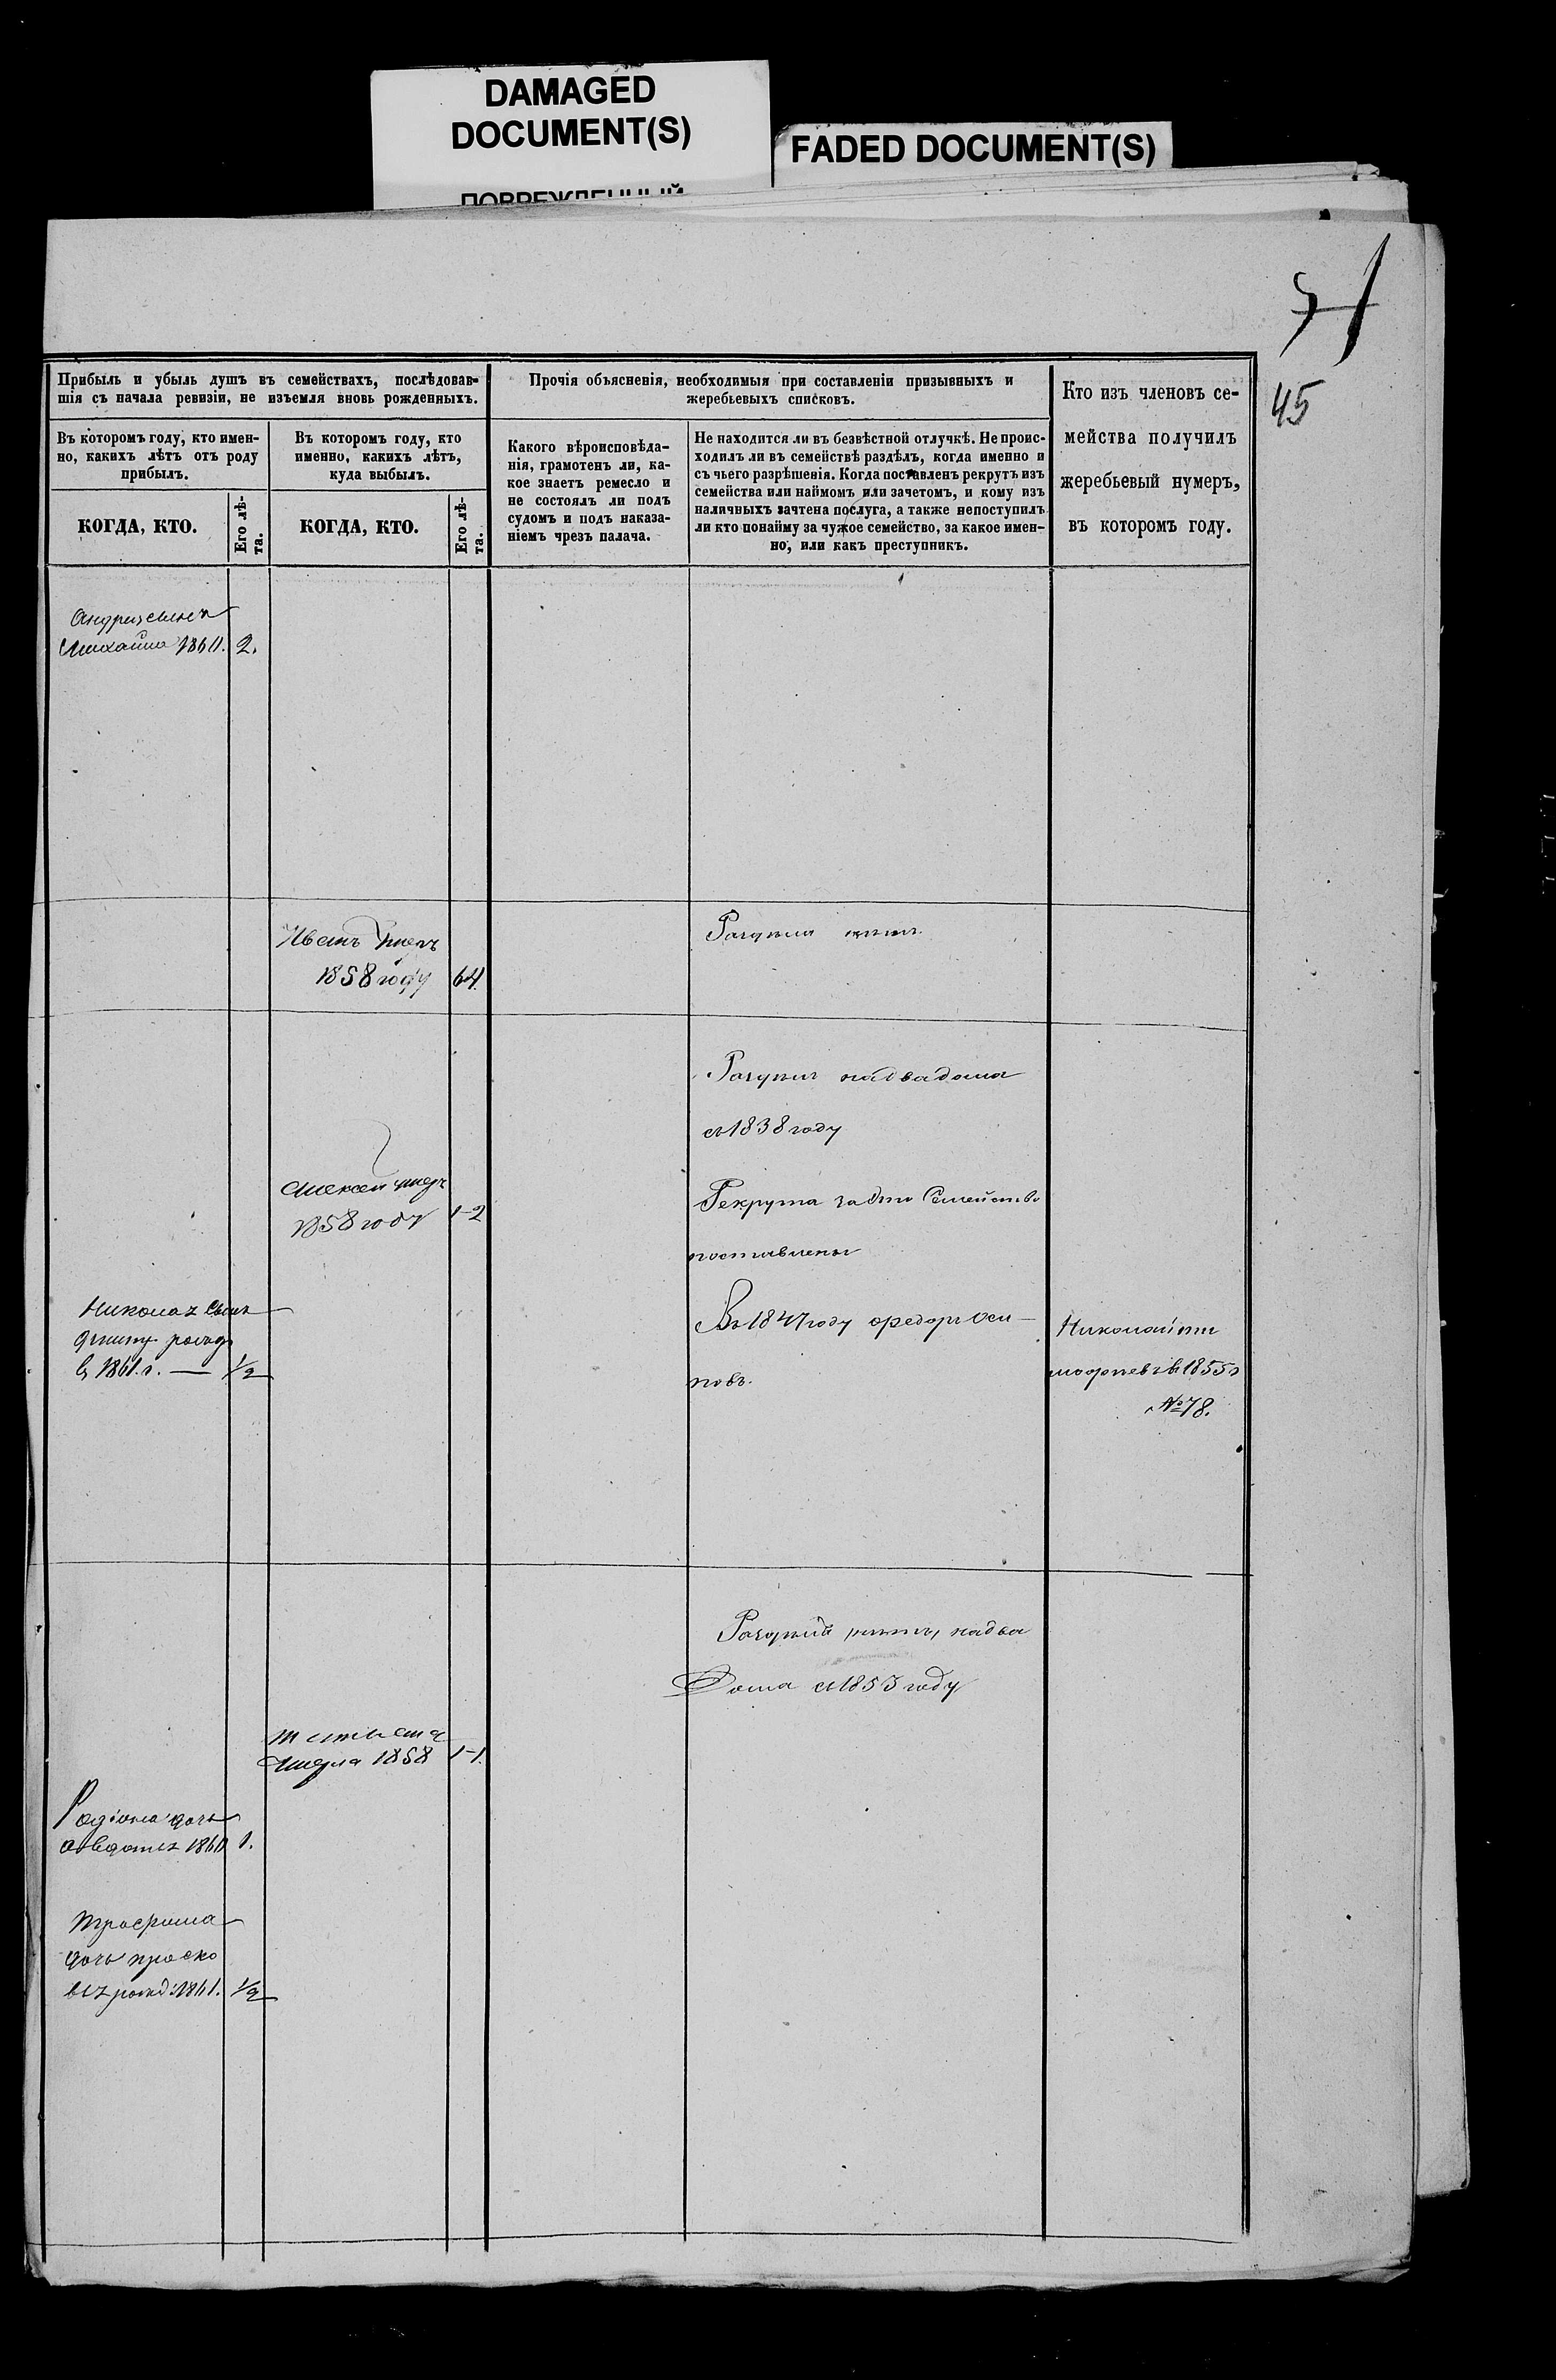 DAMAGED
DOCUMENT(S)
FADED DOCUMENT(S)
ПОВРЕЖДЕННЫЙ
45
Прибыль и убыль душъ въ семействахъ, послѣдовав-
шія съ начала ревизіи, не изъемля вновь рожденныхъ.
Прочія объясненія, необходимыя при составленіи призывныхъ и
жеребьевыхъ списковъ.
Кто изъ членовъ се-
мейства получилъ
жеребьевый нумеръ,
въ которомъ году.
Въ которомъ году, кто имен-
но, какихъ лѣтъ отъ роду
прибылъ.
Въ которомъ году, кто
именно, какихъ лѣтъ,
куда выбылъ.
Какого вѣроисповѣда-
нія, грамотенъ ли, ка-
кое знаетъ ремесло и
не состоялъ ли подъ
судомъ и подъ наказа-
ніемъ чрезъ палача.
Не находится ли въ безвѣстной отлучкѣ. Не проис-
ходилъ ли въ семействѣ раздѣлъ, когда именно и
съ чьего разрѣшенія. Когда поставленъ рекрутъ изъ
семейства или наймомъ или зачетомъ, и кому изъ
наличныхъ зачтена послуга, а также непоступилъ
ли кто понайму за чужое семейство, за какое имен-
но, или какъ преступникъ.
КОГДА, КТО.
Его лѣ-
та.
КОГДА, КТО.
Его лѣ-
та.
Андрея сынъ
Михайла 1860. 2.
Иванъ умеръ
1858 году 64.
надвадома
съ 1838 году
Алексей умеръ
1858 году 1-2
Рекрута Семейство
поставлены
Николая сынъ
в 1861.г. — 1/2
Въ 1847 году Федоръ Оси-
повъ.
Николай
1855 г
№ 78.
надва
Дома съ 1853 году
Татьяна
умерла 1858 1-1.
Родіона дочь
Авдотья 1860 1.
Трофима
дочь проско
вья рожд: 1861. 1/2